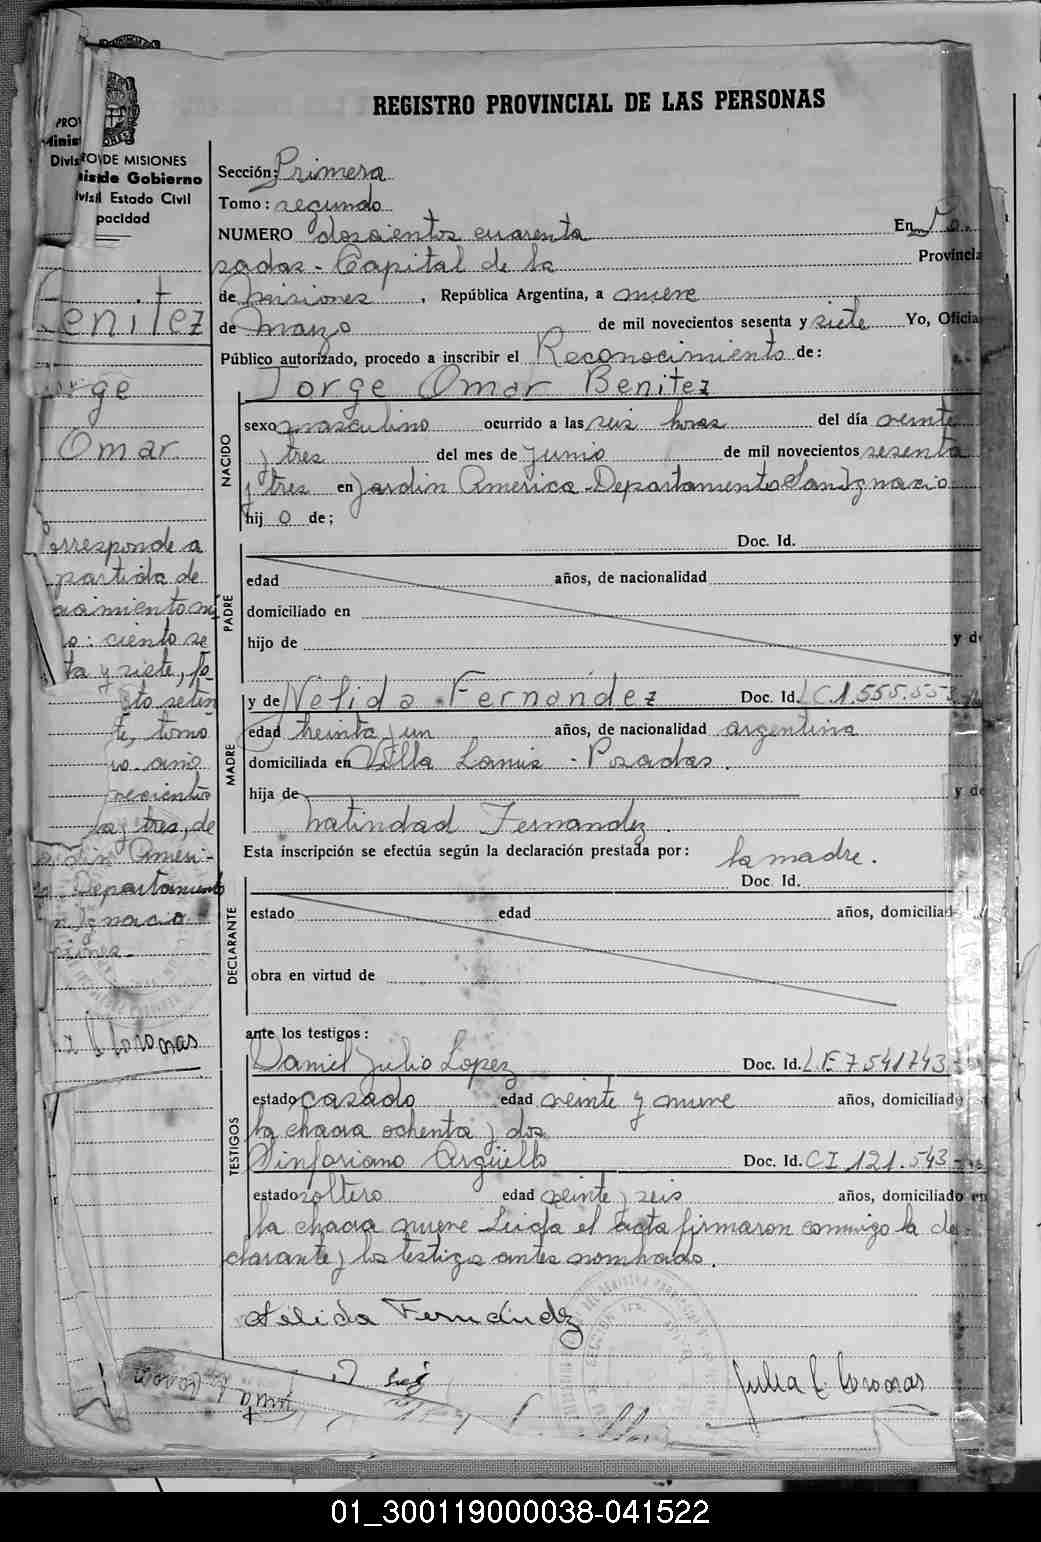 REGISTRO PROVINCIAL DE LAS PERSONAS
DE MISIONES
de Gobierno
Estado Civil
pacidad
Sección: Primera
Tomo: segundo
NUMERO doscientos cuarenta En Po
sadas - Capital de la Provincia
de Misiones, República Argentina, a nueve
de Marzo de mil novecientos sesenta y siete Yo, Oficial
Público autorizado, procedo a inscribir el Reconocimiento de:
Jorge Omar Benitez
NACIDO
sexo masculino ocurrido a las seis horas del día veinte
y tres del mes de Junio de mil novecientos sesenta
y tres en Jardin America - Departamento San Ignacio
hij o de;
PADRE
Doc. Id.
edad años, de nacionalidad
domiciliado en
hijo de y de
MADRE
y de Nelida Fernandez Doc. Id. LC 1.555.553
edad treinta y un años, de nacionalidad argentina
domiciliada en Villa Lanus - Posadas.
hija de y de
natividad Fernandez.
Esta inscripción se efectúa según la declaración prestada por: la madre.
DECLARANTE
Doc. Id.
estado edad años, domiciliad
obra en virtud de
ante los testigos:
TESTIGOS
Daniel Julio Lopez Doc. Id. L.E 7.541743
estado casado edad veinte y nueve años, domiciliado
la chacra ochenta y dos
Sinforiano Argüello Doc. Id. CI 121.543
estado soltero edad veinte y seis años, domiciliado en
la chacra nueve Leida el acta firmaron conmigo la de
clarante y los testigos antes nombrados.
Nelida Fernández
Julia C. Coronas
Benitez
Jorge
Omar
Corresponde a
partida de
nacimiento nú
o: ciento se
ta y siete, fo
sto setin
te, tomo
año
novecientos
ta y tres, de
Jardin Améri-
Departamento
Ignacio
Coronas
01_300119000038-041522